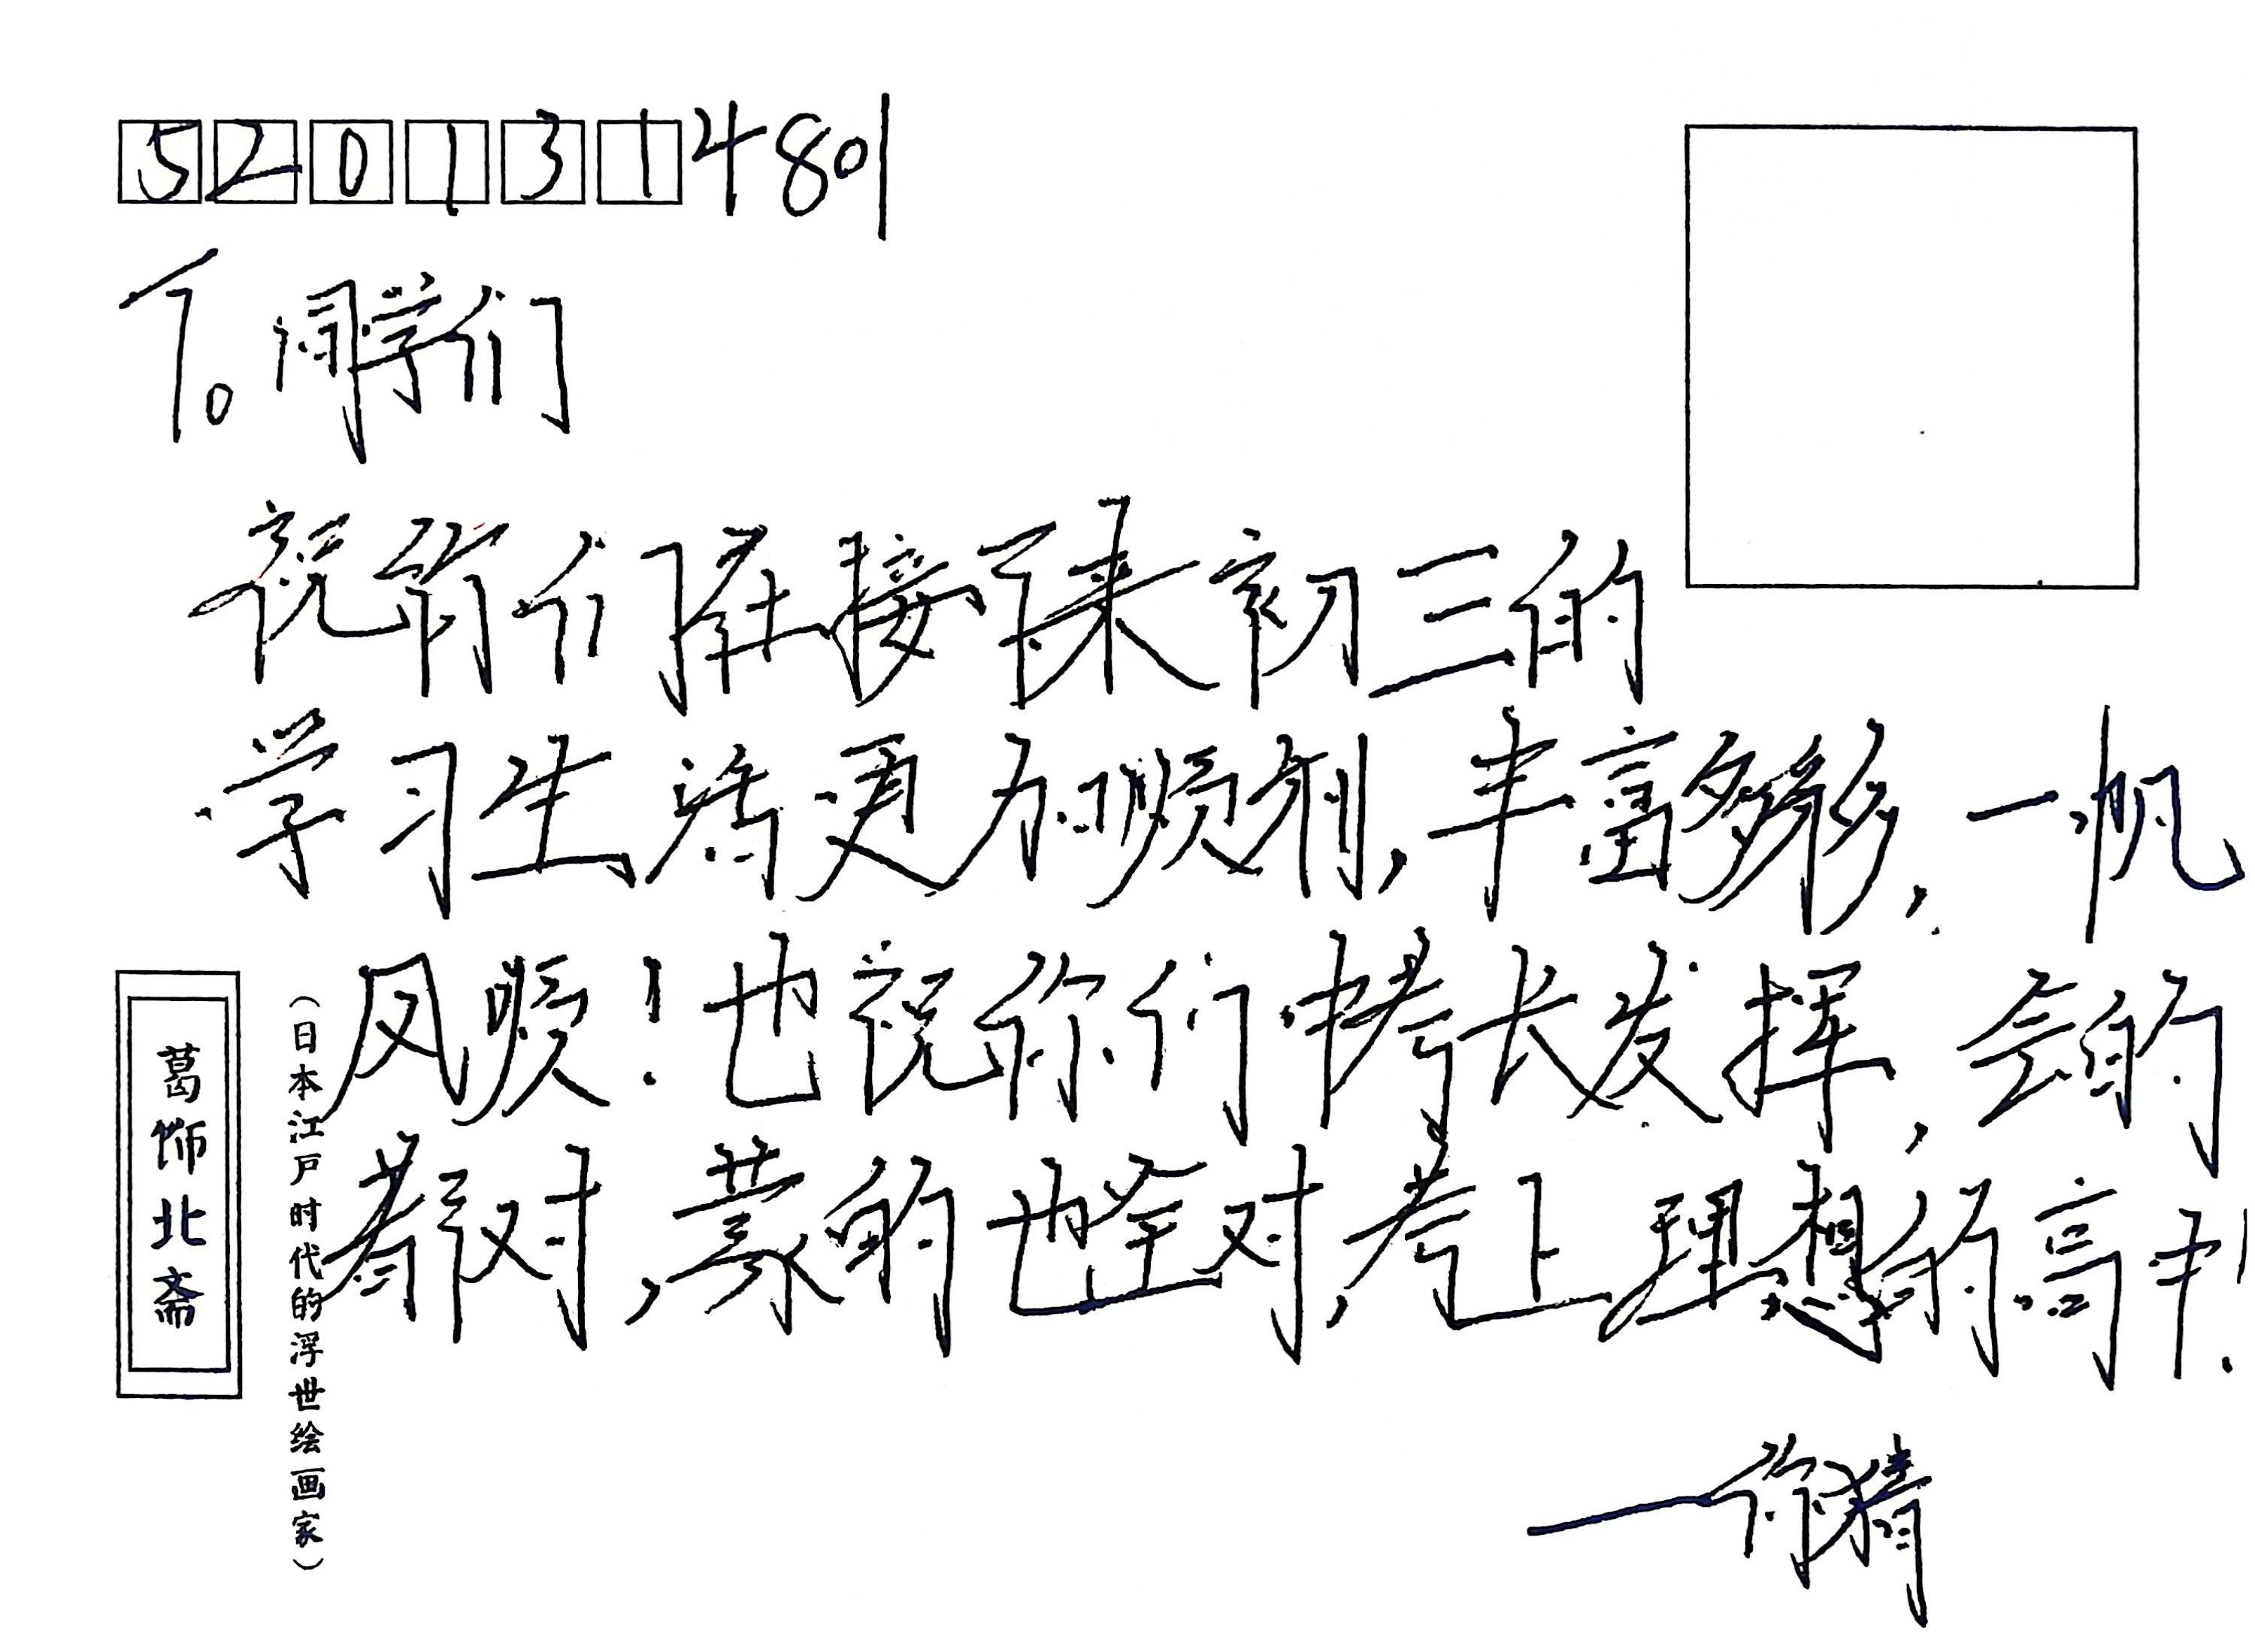 5201314801
To 同学们
祝你们在接下来初三的
学习生活更加顺利,丰富多彩,一帆
风顺!也祝你们中考长发挥,会的
都对,蒙的也全对,考上理想的高中!
——你猜
葛饰北斋
(日本江户时代的浮世绘画家)